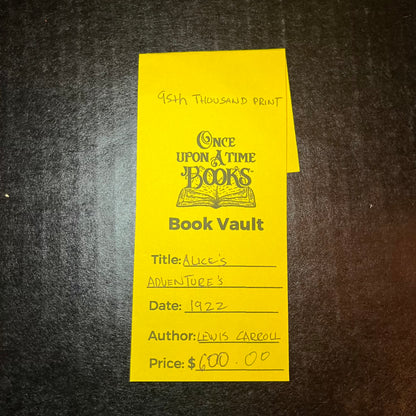 95th THOUSAND PRINT
ONCE
UPON A TIME
BOOKS
Book Vault
Title: ALICE'S
ADVENTURE'S
Date: 1922
Author: LEWIS CARROLL
Price: $ 600.00